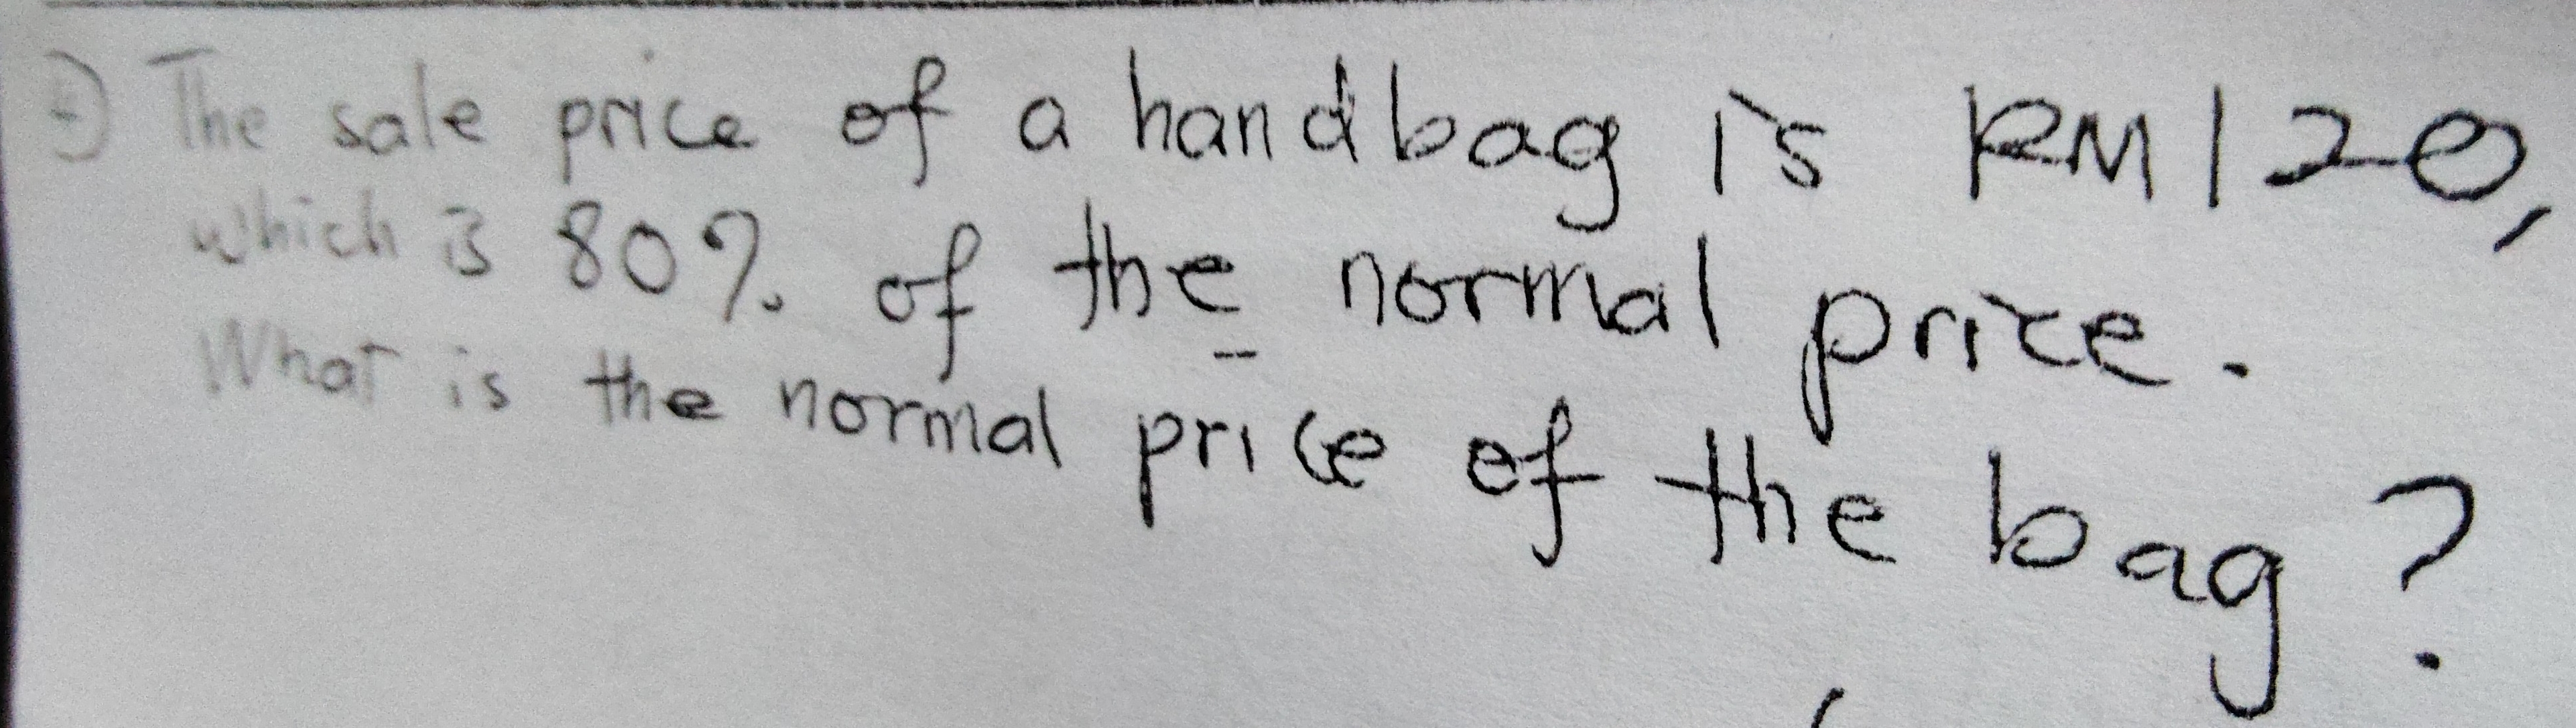 The sale price of a handbag is RM120,
which is 80% of the normal price.
What is the normal price of the bag?